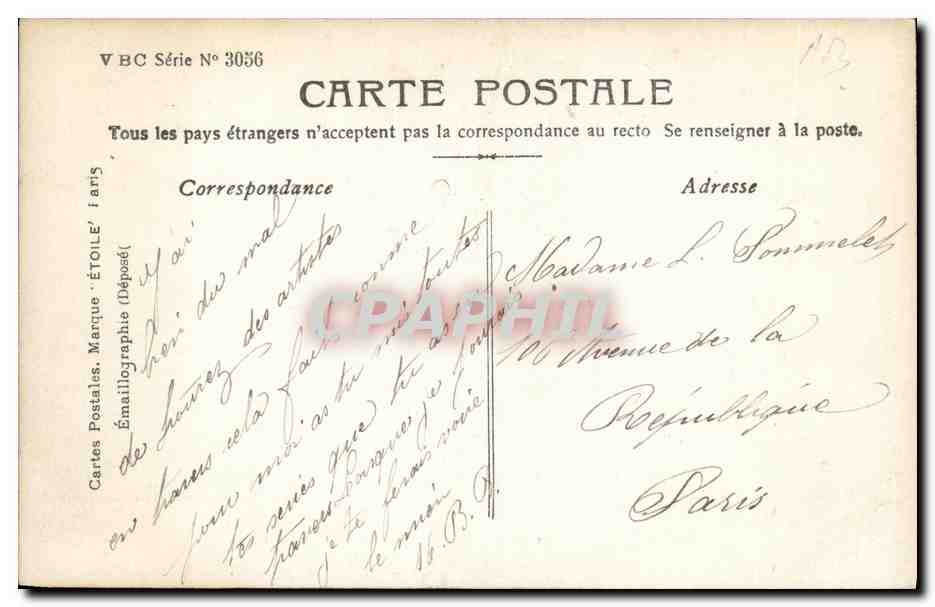 VBC Série Nº 3056
CARTE POSTALE
Tous les pays étrangers n'acceptent pas la correspondance au recto Se renseigner à la poste.
Correspondance
Adresse
Cartes Postales. Marque "ÉTOILE" Paris
Émaillographie (Déposé)
J'ai
du mal
de des artistes
en cela
pour moi as tu mis toutes
tes series que tu as
Lorsque je pourais
je te ferais voire
le mien
16. B. B.
Madame L. Pommelet
106 Avenue de la
République
Paris
CPAPHIL